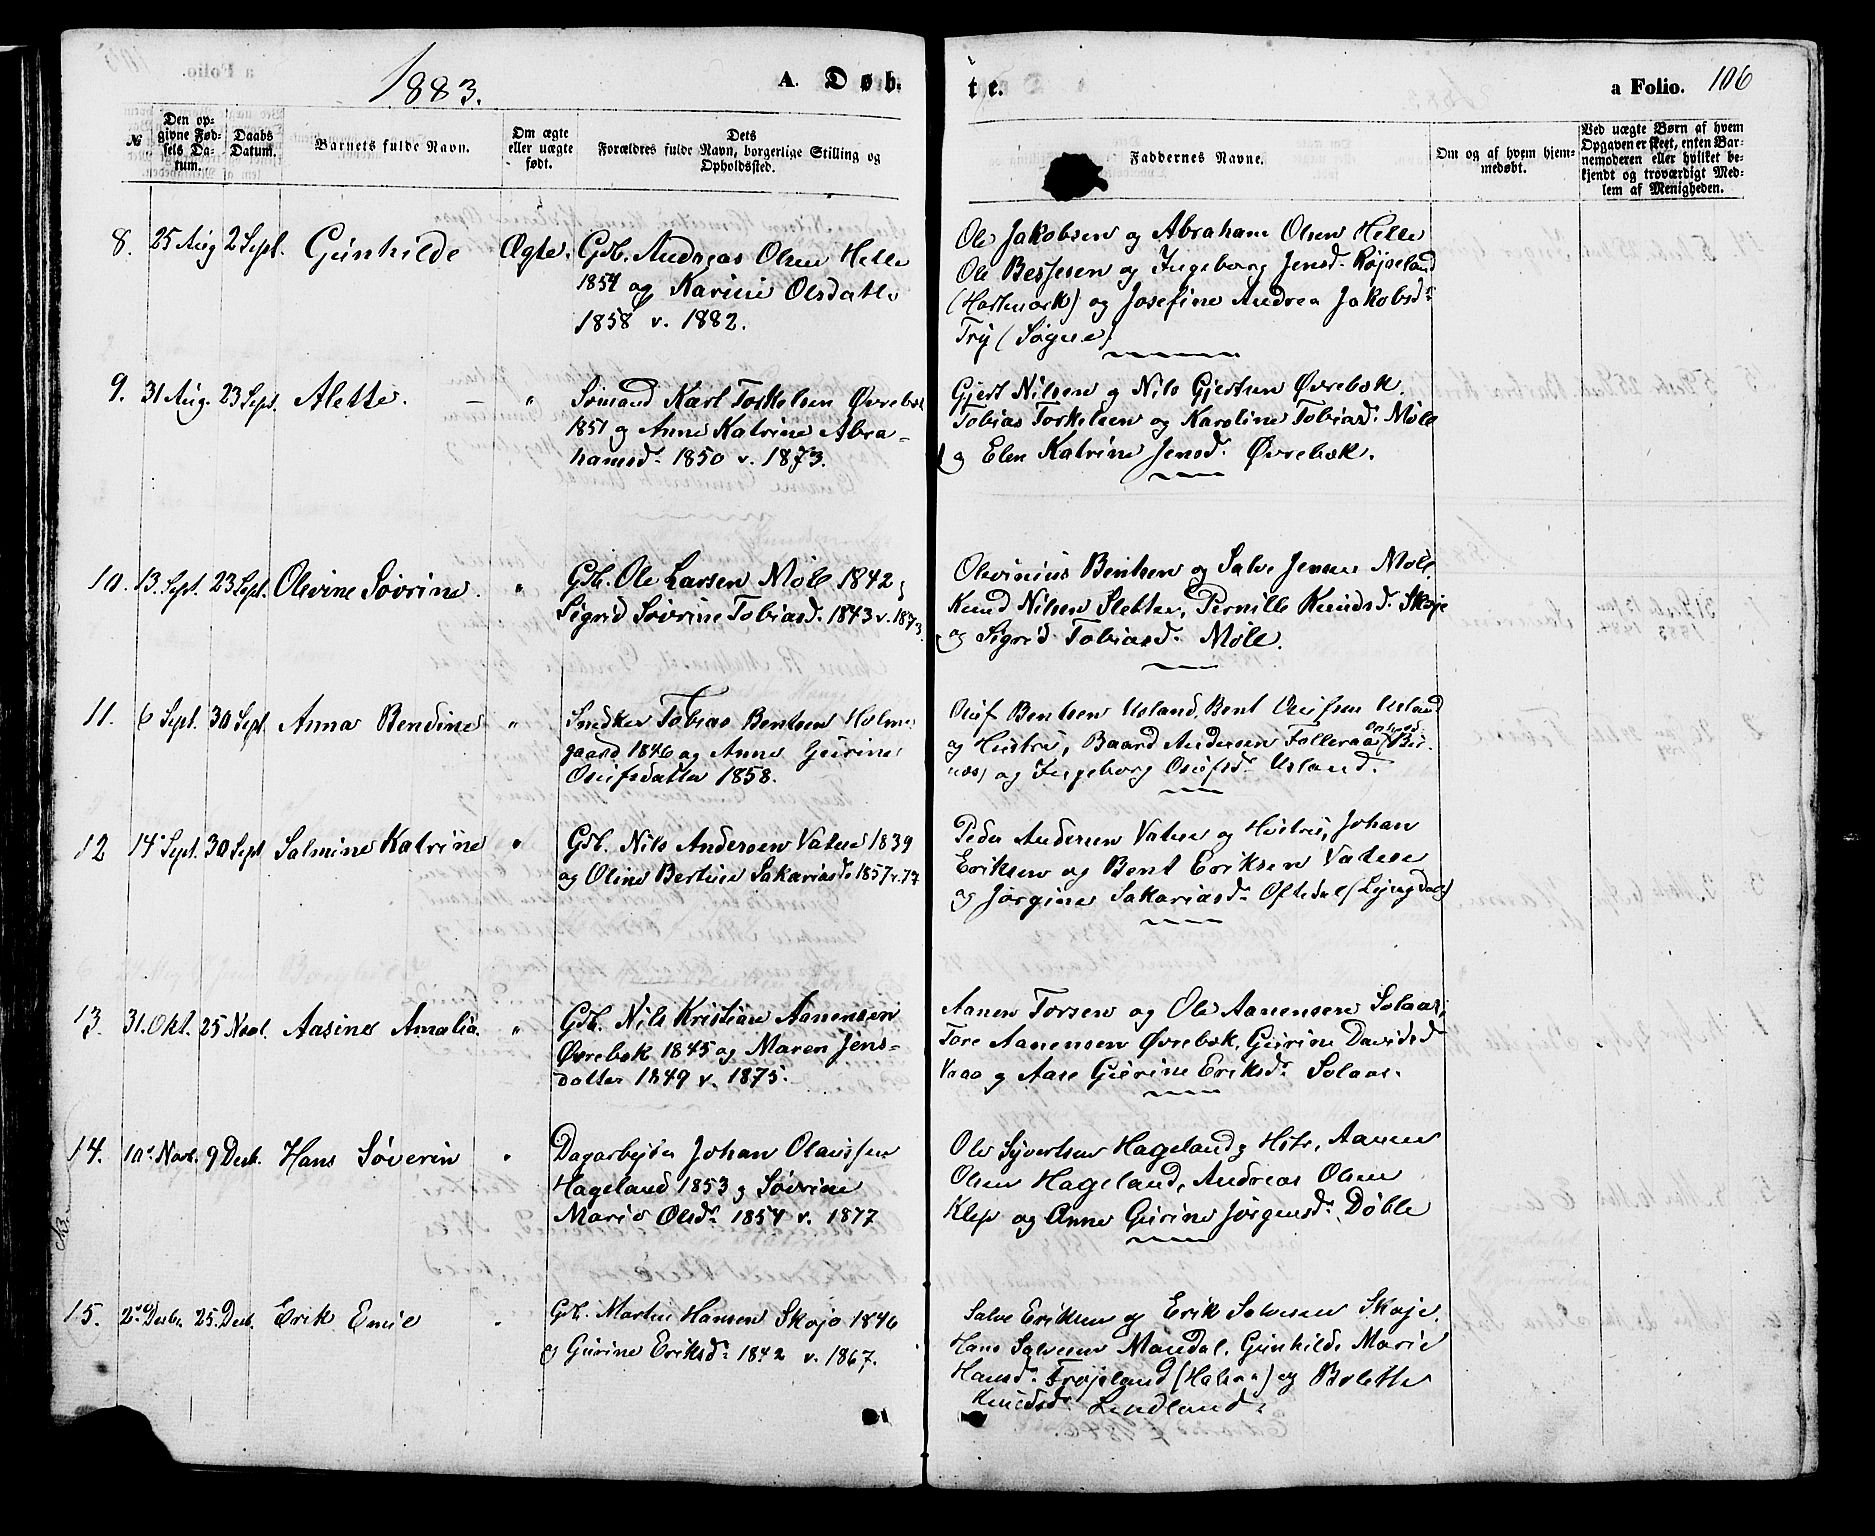 1883.
A. Døb-
te.
a Folio. 106
№
Den opgivne Fødsels Datum.
Daabs Datum.
Barnets fulde Navn.
Om ægte eller uægte født.
Dets Forældres fulde Navn, borgerlige Stilling og Opholdssted.
Faddernes Navne.
Om og af hvem hjemmedøbt.
Ved uægte Børn af hvem Opgaven er skeet, enten Barnemoderen eller hvilket bekjendt og troværdigt Medlem af Menigheden.
8. 25 Aug 2 Sept. Gunhilde Ægte. Gbr. Andreas Olsen Helle
1854 og Karine Olsdatter
1858 v. 1882.
Ole Jakobsen og Abraham Olsen Helle
Ole Besjesen og Ingeborg Jensd. Røjseland
(Hartmark) og Josefine Andrea Jakobsd.
Try (Søgne)
9. 31 Aug. 23 Sept. Alette. — " Sømand Karl Torkelsen Øvrebøk
1851 og Anne Katrine Abra-
hamsd. 1850 v. 1873.
Gjert Nilsen og Nils Gjertsen Øvrebøk.
Tobias Torkelsen og Karoline Tobiasd. Møll
og Elen Katrine Jensd. Øvrebøk.
10. 13 Sept. 23 Sept. Olevine Søvrine. " Gbr. Ole Larsen Møll 1842 og
Sigrid Søvrine Tobiasd. 1843 v. 1873.
Olevinius Bentsen og Salve Jensen Møll.
Knud Nilsen Sletten, Pernille Knudsd. Skøje
og Sigrid Tobiasd. Møll.
11. 6 Sept. 30 Sept. Anna Bendine " Snedker Tobias Bentsen Holme-
gaard 1846 og Anne Gurine
Osufsdatter 1858.
Osuf Bentsen Usland, Bent Osufsen Usland
og Hustru, Baard Andersen Folleraas
og Ingeborg Osufsd. Usland.
12 14 Sept. 30 Sept Salmine Katrine " Gbr. Nils Andersen Vatne 1839
og Oline Bertine Sakariasd. 1857 v. 77
Peder Andersen Vatne og Hustru, Johan
Eriksen og Bent Eriksen Vatne
og Jørgine Sakariasd. Oftedal (Lyngdal)
13. 31. Okt. 25 Novb. Aasine Amalia. " Gbr. Nils Kristian Aanensen
Øvrebøk 1845 og Maren Jens-
datter 1849 v. 1875.
Aanen Torsen og Ole Aanensen Solaas,
Tore Aanensen Øvrebøk, Gurine Davidsd
Vraa og Aase Gurine Eriksd. Solaas.
14. 10. Novb. 9 Decb. Hans Søverin " Dagarbejder Johan Olaissen
Hageland 1853 og Søvrine
Marie Olsd. 1854 v. 1877
Ole Syvertsen Hageland og Hstr., Aanen
Olsen Hageland, Andreas Olsen
Klep og Anne Gurine Jørgensd. Døble
NB.
15. 2. Decbr. 25. Decb. Erik Emil " Gbr. Martin Hansen Skøje 1846
og Gurine Eriksd. 1842 v. 1867.
Salve Eriksen og Erik Salvesen Skøje.
Hans Salvesen Mandal, Gunhilde Marie
Hansd. Trøjeland (Halsaa) og Bolette
Knudsd. Lindland.